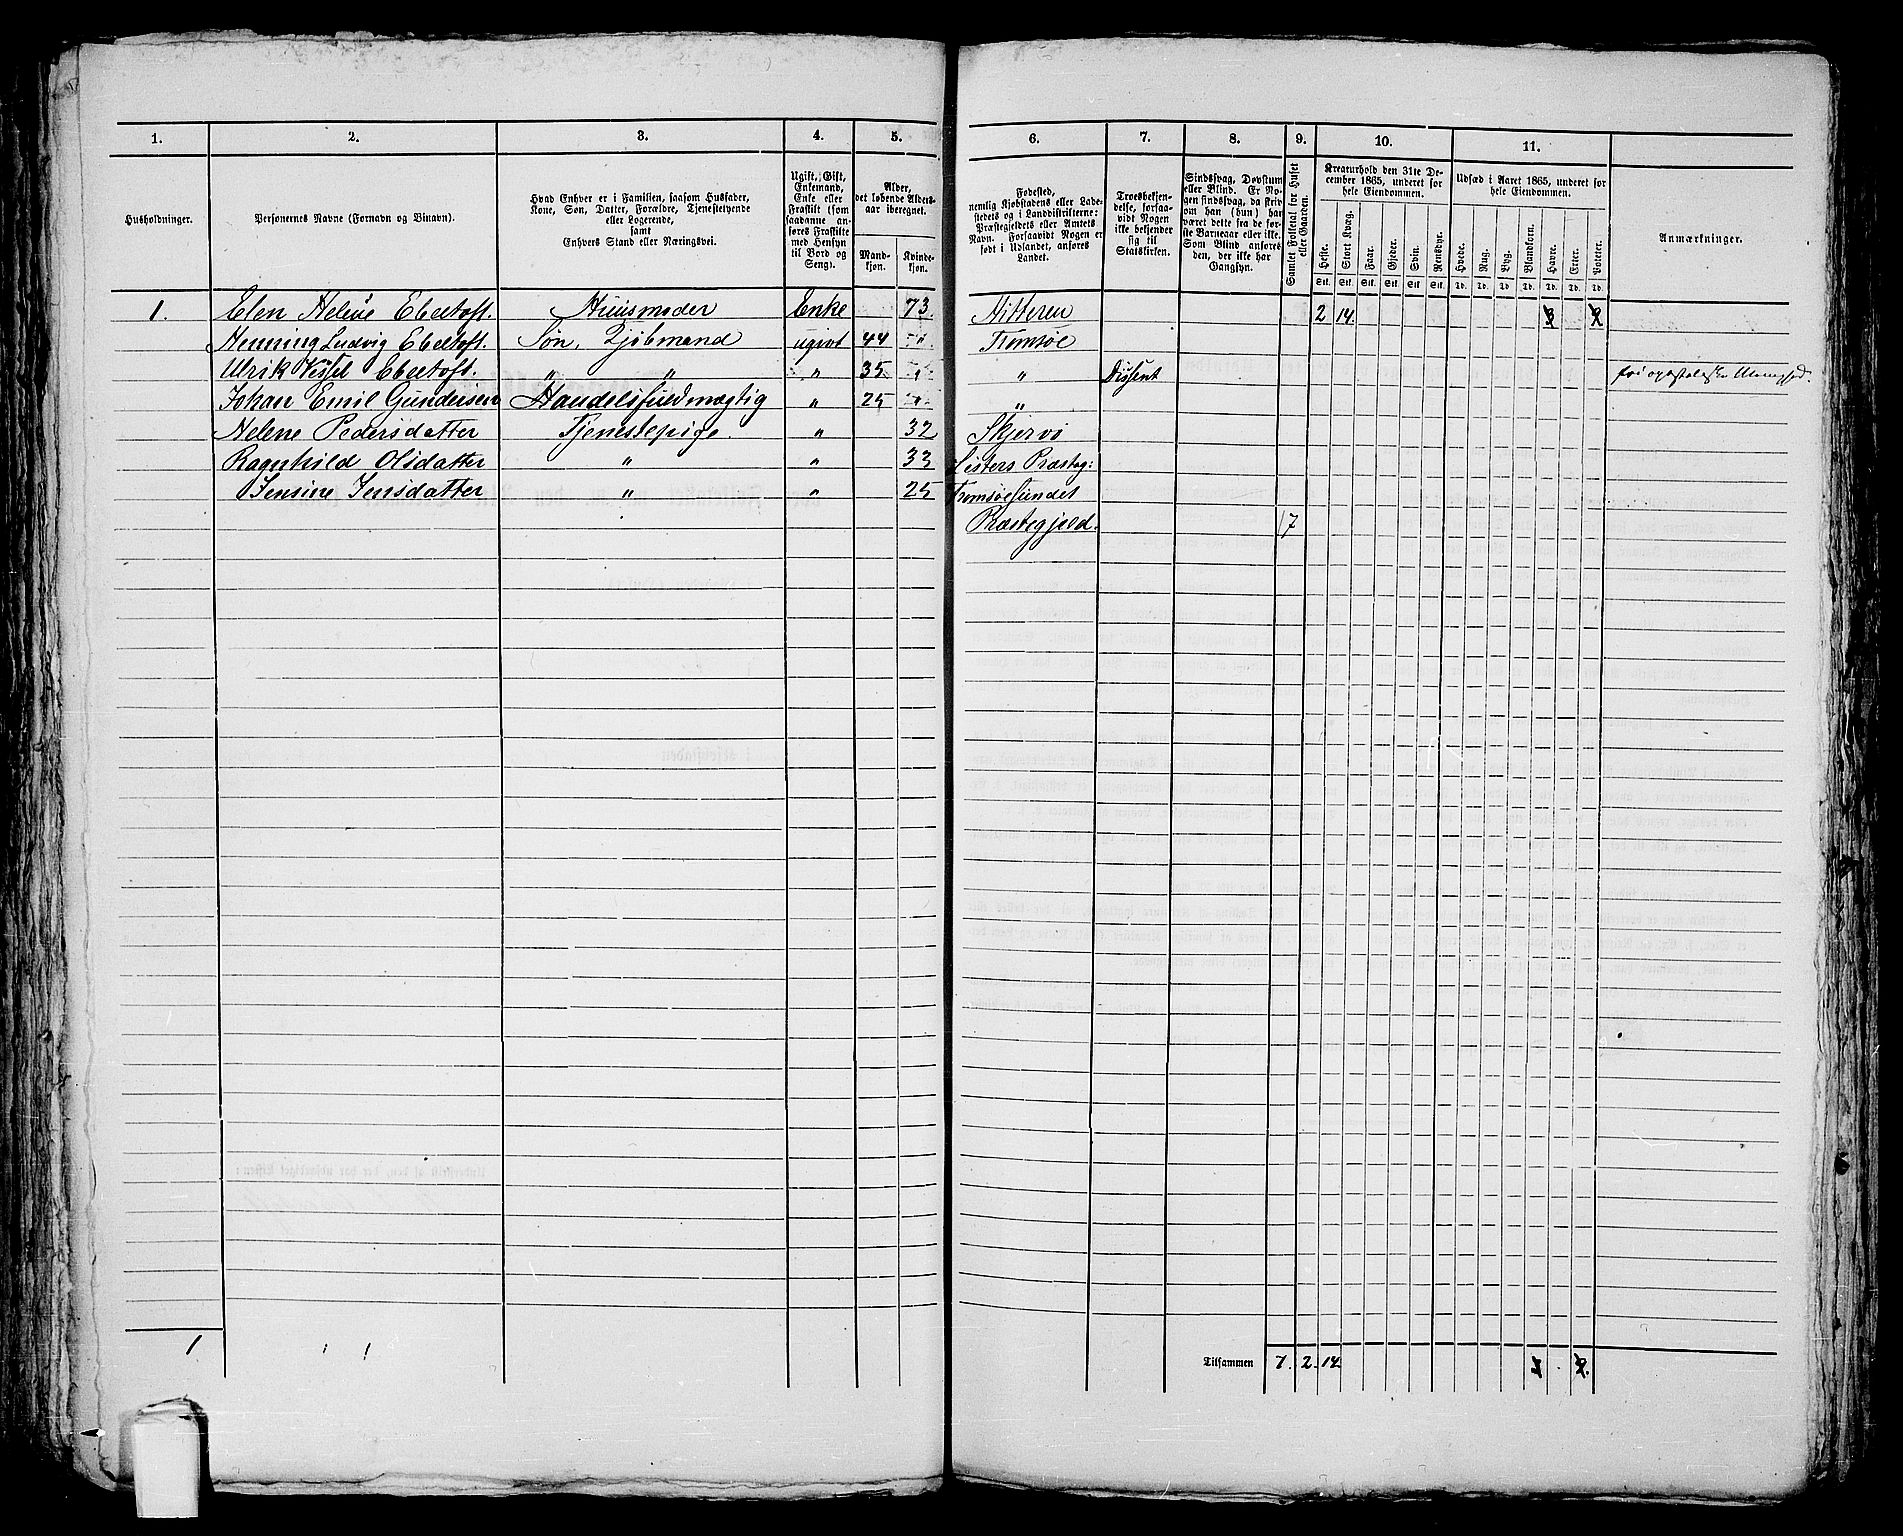 1. 2. 3. 4. 5. 6. 7. 8. 9. 10. 11.
Husholdninger.
Personernes Navne (Fornavn og Binavn).
Hvad Enhver er i Familien, saasom Husfader,
Kone, Søn, Datter, Forældre, Tjenestetyende
eller Logerende,
samt
Enhvers Stand eller Næringsvei.
Ugift, Gift,
Enkemand,
Enke eller
Fraskilt (som
saadanne an-
føres Fraskilte
med Hensyn
til Bord og
Seng).
Alder,
det løbende Alders-
aar iberegnet.
Mand-
kjøn.
Kvinde-
kjøn.
Fødested,
nemlig Kjøbstadens eller Lade-
stedets og i Landdistrikterne:
Præstegjeldets eller Amtets
Navn. Forsaavidt Nogen er
født i Udlandet, anføres
Landet.
Troesbekjen-
delse, forsaa-
vidt Nogen
ikke bekjender
sig til
Statskirken.
Sindssvag, Døvstum
eller Blind. Er No-
gen sindssvag, da skriv
om han (hun) har
været dette fra de før-
ste Barneaar eller ikke.
Som Blind anføres
den, der ikke har
Gangsyn.
Samlet Folketal for Huset
eller Gaarden.
Kreaturhold den 31te De-
cember 1865, underet for
hele Eiendommen.
Heste. Stort Kvæg. Faar. Gjeder. Svin. Rensdyr.
Stk. Stk. Stk. Stk. Stk. Stk.
Udsæd i Aaret 1865, underet for
hele Eiendommen.
Hvede. Rug. Byg. Blandkorn. Havre. Erter. Poteter.
Td. Td. Td. Td. Td. Td. Td.
Anmærkninger.
1. Elen Helene Ebeltoft. Huusmoder Enke 73. Hitteren 2 14.
Henning Ludvig Ebeltoft. Søn, Kjøbmand ugivt 44 " Tromsøe
Ulrik Vessel Ebeltoft. " " " 35 " " Dissent fri apostoliske
Johan Emil Gundersen Handelsfuldmægtig " 25 " "
Helene Pedersdatter Tjenestepige. " 32 Skjervø
Ragnhild Olsdatter " " 33 Listers Præsteg:
Jensine Jensdatter " " 25 Tromsøesundet
Præstegjeld. 7
1 Tilsammen 7. 2. 14